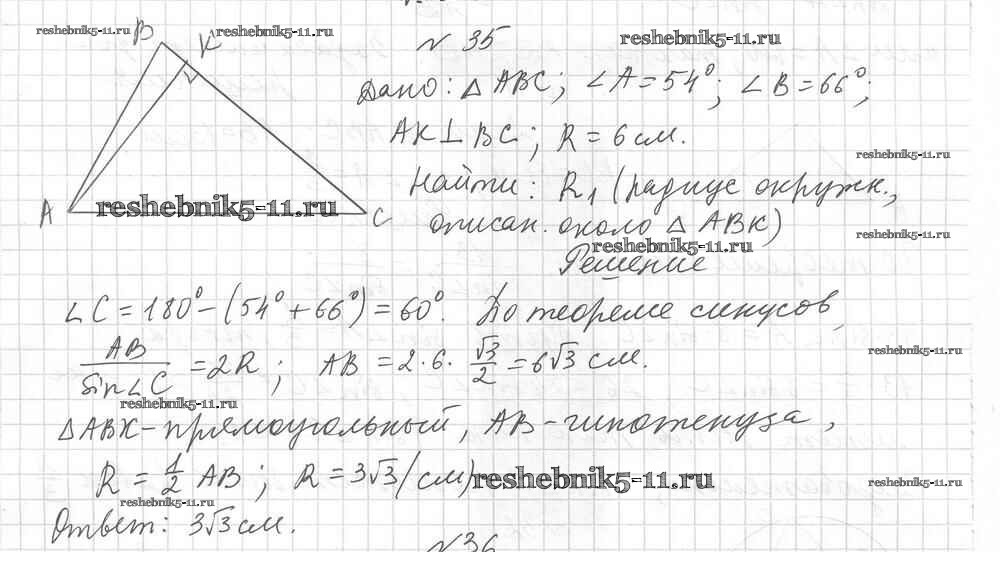 reshebnik5-11.ru
B K reshebnik5-11.ru
№ 35 reshebnik5-11.ru
Дано: △ ABC; ∠A = 54°; ∠B = 66°;
AK⊥BC; R = 6 см.
reshebnik5-11.ru
Найти: R₁ (радиус окружн.,
A reshebnik5-11.ru C
описан. около △ ABK)
reshebnik5-11.ru
reshebnik5-11.ru
Решение
∠C = 180° – (54° + 66°) = 60°. По теореме синусов,
AB / sin∠C = 2R; AB = 2·6·√3/2 = 6√3 см.
reshebnik5-11.ru
reshebnik5-11.ru
△ABK – прямоугольный, AB – гипотенуза,
R = 1/2 AB; R = 3√3 (см) reshebnik5-11.ru
reshebnik5-11.ru
reshebnik5-11.ru
Ответ: 3√3 см.
№36